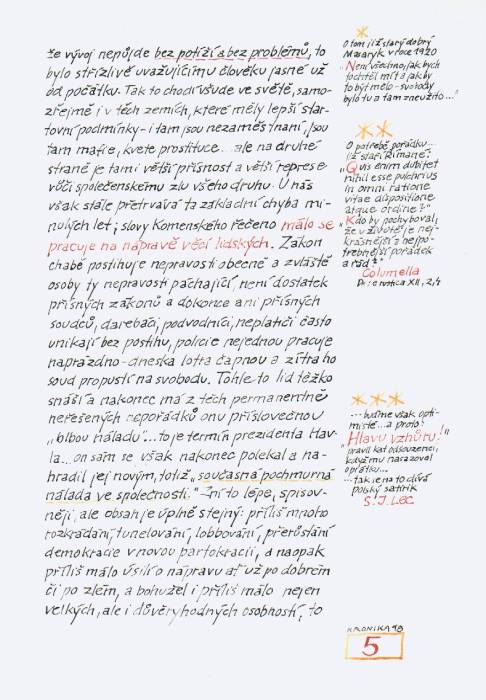 že vývoj nepůjde bez potíží a bez problémů, to
bylo střízlivě uvažujícímu člověku jasné už
od počátku. Tak to chodí všude ve světě, samo-
zřejmě i v těch zemích, které měly lepší star-
tovní podmínky - i tam jsou nezaměstnaní, jsou
tam mafie, kvete prostituce... ale na druhé
straně je tam i větší přísnost a větší represe
vůči společenskému zlu všeho druhu. U nás
však stále přetrvává ta základní chyba mi-
nulých let; slovy Komenského řečeno málo se
pracuje na nápravě věcí lidských. Zákon
chabě postihuje nepravosti obecně a zvláště
osoby ty nepravosti páchající, není dostatek
přísných zákonů a dokonce ani přísných
soudců, darebáci, podvodníci, neplatiči často
unikají bez postihu, policie nejednou pracuje
naprázdno - dneska lotra čapnou a zítra ho
soud propustí na svobodu. Tohle to lid těžko
snáší a nakonec má z těch permanentně
neřešených nepořádků onu příslovečnou
„blbou náladu"... to je termín prezidenta Hav-
la... on sám se však nakonec polekal a na-
hradil jej novým, totiž „současná pochmurná
nálada ve společnosti." Zní to lépe, spisov-
něji, ale obsah je úplně stejný: příliš mnoho
rozkrádání, tunelování, lobbování, přerůstání
demokracie v novou partokracii, a naopak
příliš málo úsilí o nápravu ať už po dobrém
či po zlém, a bohužel i příliš málo nejen
velkých, ale i důvěryhodných osobností, to
*
O tom již starý dobrý
Masaryk v roce 1920
„Není všechno, jak bych
to chtěl mít a jak by
to být mělo - svobody
bylo tu a tam zneužito..."
**
O potřebě pořádku...
již staří Římané:
„Quis enim dubitet
nihil esse pulchrius
in omni ratione
vitae dispositione
atque ordine?"
„Kdo by pochyboval,
že v životě je nej-
krásnější a nejpo-
třebnější pořádek
a řád?"
Columella
De re rustica XII, 2,4
***
... buďme však opti-
misté... a proto!
„Hlavu vzhůru!"
pravil kat odsouzenci,
když mu nasazoval
oprátku...
... tak je na to dívá
polský satirik
S. J. Lec
KRONIKA 98
5